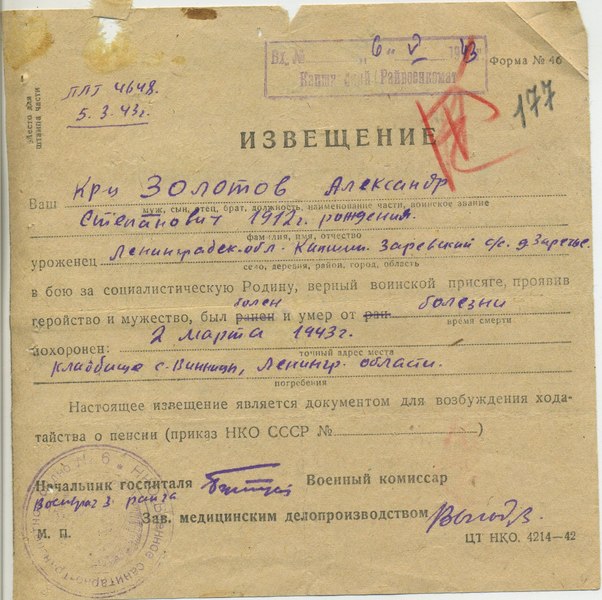 Вх. № „6" V 1943
Райвоенкомат
Форма № 46
Место для штампа части
ППГ 4648.
5.3.43г.
177
ИЗВЕЩЕНИЕ
Ваш Кр-ц Золотов Александр
муж, сын, отец, брат, должность, наименование части, воинское звание
Степанович 1912г. рождения.
фамилия, имя, отчество
уроженец Ленинградск. обл. Заревский с/с. д. Заречье.
село, деревня, район, город, область
в бою за социалистическую Родину, верный воинской присяге, проявив
болен болезни
геройство и мужество, был ранен и умер от ран
время смерти
2 марта 1943г.
похоронен:
точный адрес места
Кладбище с. Винницы, Ленингр. области.
погребения
Настоящее извещение является документом для возбуждения хода-
тайства о пенсии (приказ НКО СССР № )
Начальник госпиталя Военный комиссар
Военврач 3 ранга
Зав. медицинским делопроизводством
М. П.
ЦТ НКО. 4214—42